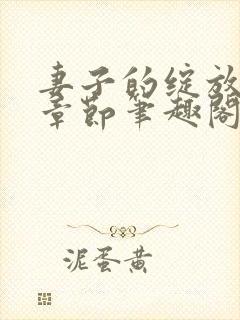 妻子的绽放
章节笔趣阁
泥蛋黄